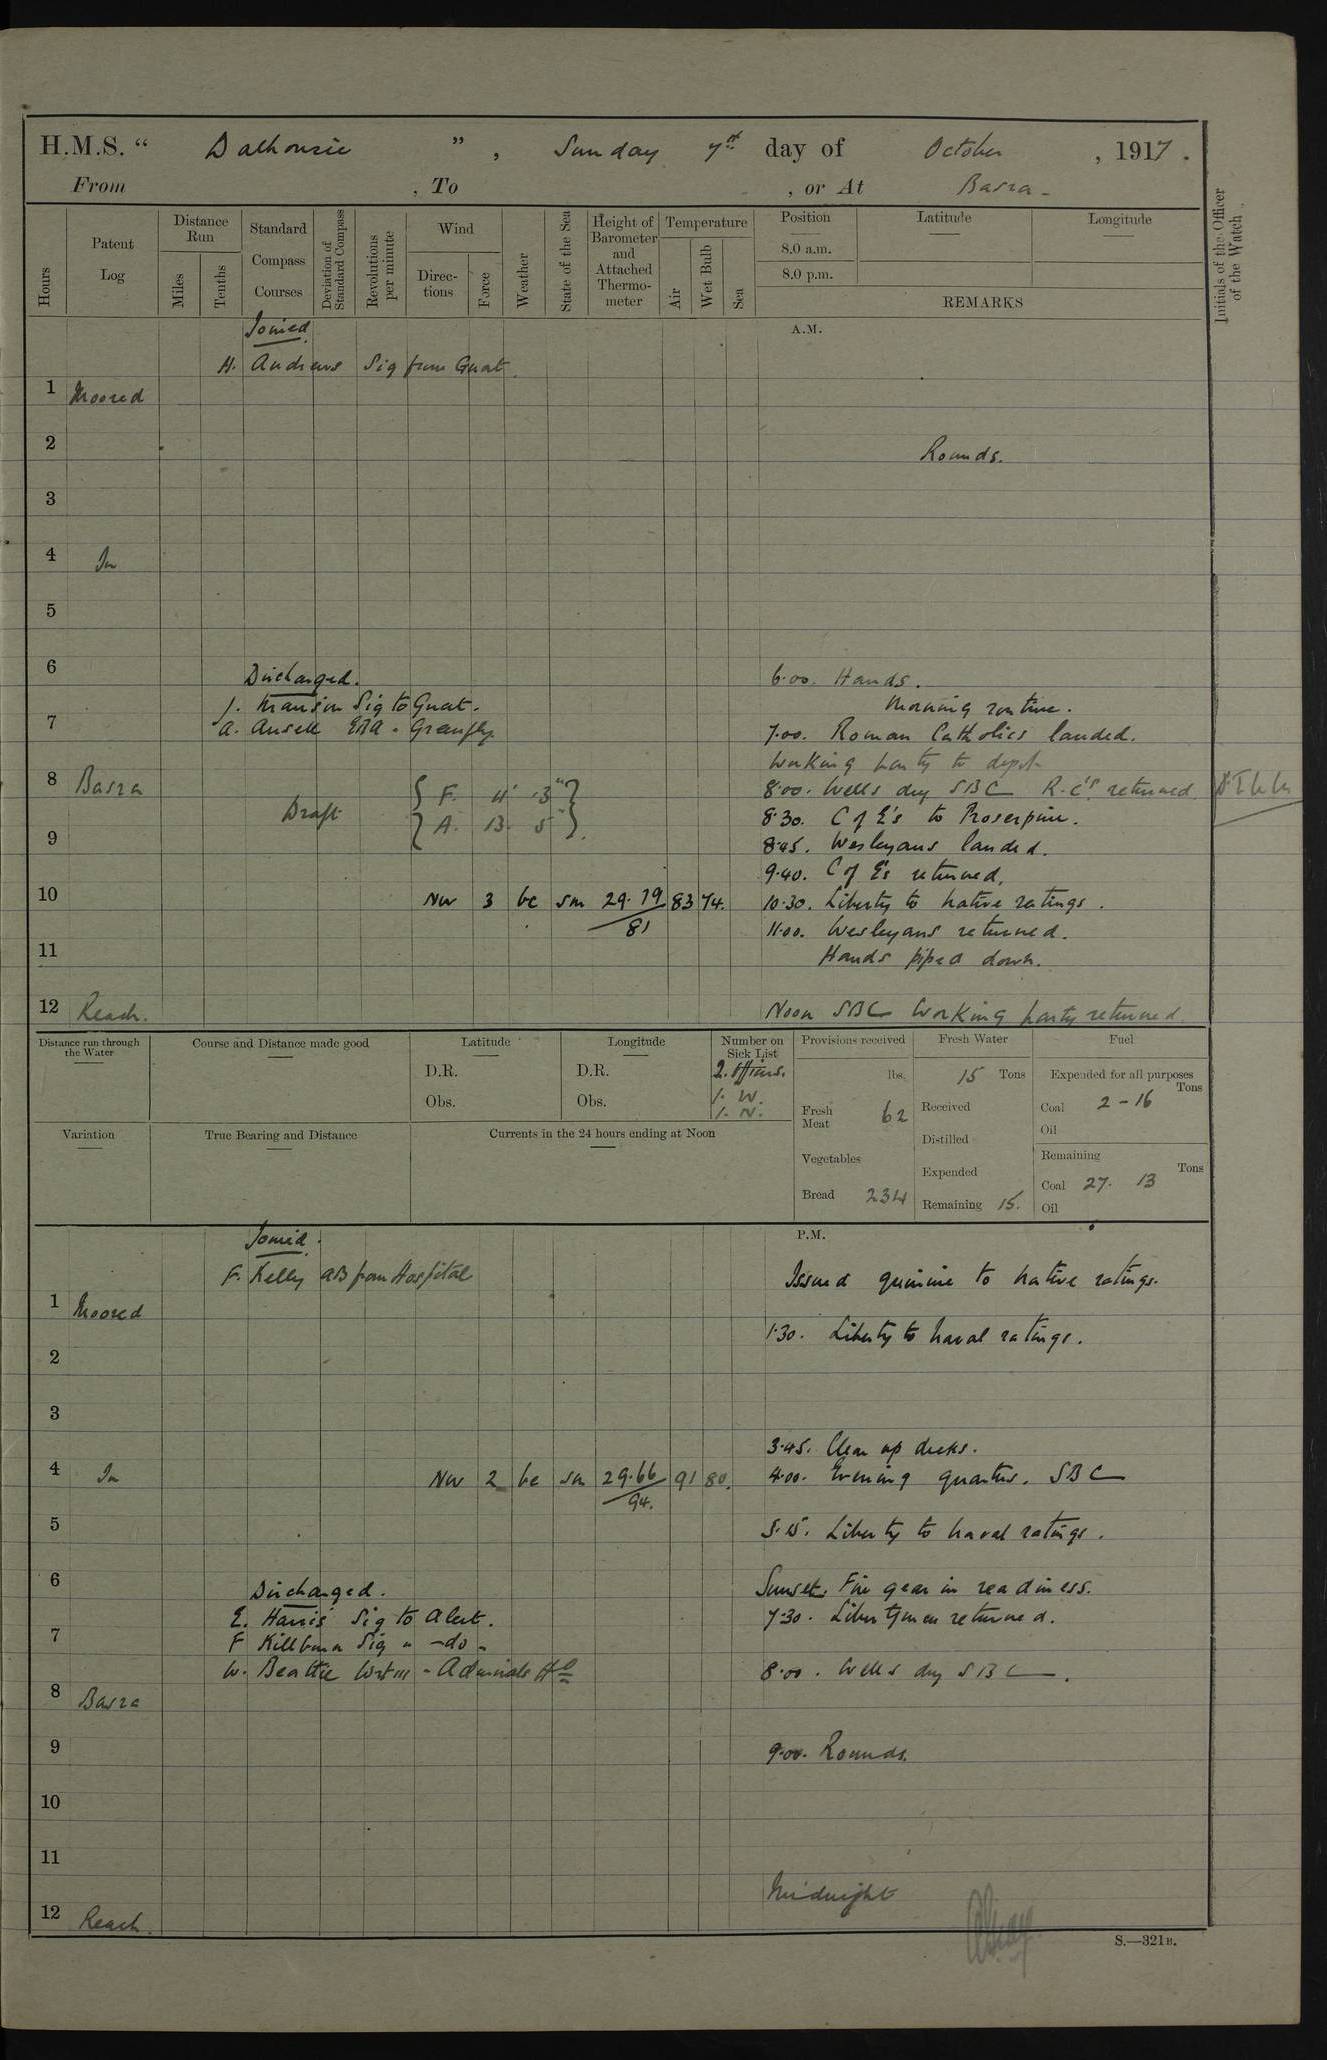 H.M.S. “ Dalhousie ” , Sunday 7th day of October , 1917 .
From , To , or At Basra -
Hours
Patent Log
Distance Run
Miles
Tenths
Standard Compass Courses
Deviation of Standard Compass
Revolutions per minute
Wind
Directions
Force
Weather
State of the Sea
Height of Barometer and Attached Thermometer
Temperature
Air
Wet Bulb
Sea
Position
8.0 a.m.
8.0 p.m.
Latitude
Longitude
REMARKS
Initials of the Officer of the Watch
Joined.
A.M.
H. Andrews Sig from Gnat.
1 Moored
2 Rounds.
3
4 In
5
6 Discharged. 6.00. Hands.
J. Sig to Gnat. Morning routine.
7 A. Ansell ERA " Greenfly 7.00. Roman Catholics landed.
Working party to depot
8 Basra { F. 4' .3" } 8.00. Wells dry SBC R.C's returned.
Draft { A. 13. 5" } 8.30. C of E's to Proserpine.
9 8.45. Wesleyans landed.
9.40. C of E's returned.
10 NW 3 bc sm 29.79 83 74. 10.30. Liberty to native ratings.
81 11.00. Wesleyans returned.
11 Hands piped down.
12 Reach. Noon SBC Working party returned.
Distance run through the Water
Course and Distance made good
Latitude
D.R.
Obs.
Longitude
D.R.
Obs.
Number on Sick List
2. Officers.
1. W.
1. N.
Provisions received
lbs.
Fresh Meat 62
Vegetables
Bread 234
Fresh Water
15 Tons
Received
Distilled
Expended
Remaining 15.
Fuel
Expended for all purposes
Tons
Coal 2 - 16
Oil
Remaining
Tons
Coal 27. 13
Oil
Variation
True Bearing and Distance
Currents in the 24 hours ending at Noon
Joined.
P.M.
F. Kelly AB from Hospital Issued quinine to native ratings.
1 Moored
1.30. Liberty to naval ratings.
2
3
3.45. Clear up decks.
4 In NW 2 bc sm 29.66 91 80. 4.00. Evening quarters. SBC
94.
5 5.15. Liberty to naval ratings.
6 Discharged. Sunset. Fire gear in readiness.
E. Harris Sig to Alert. 7.30. Libertymen returned.
7 F Sig " -do-
W. Beattie Wrt III - Admirals 8.00. Wells dry SBC.
8 Basra
9 9.00. Rounds.
10
11
Midnight
12 Reach.
S.—321B.